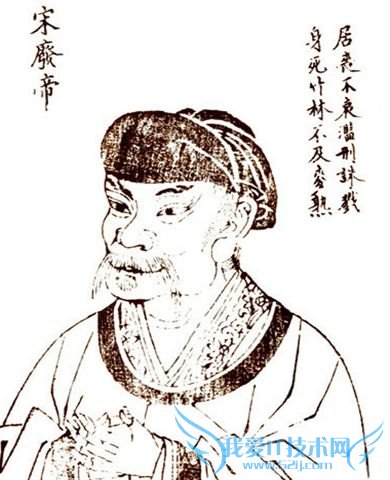 居喪不哀濫刑誅戮
身死竹林不及麥熟
宋廢帝
我爱IT技术网
www.52ij.com